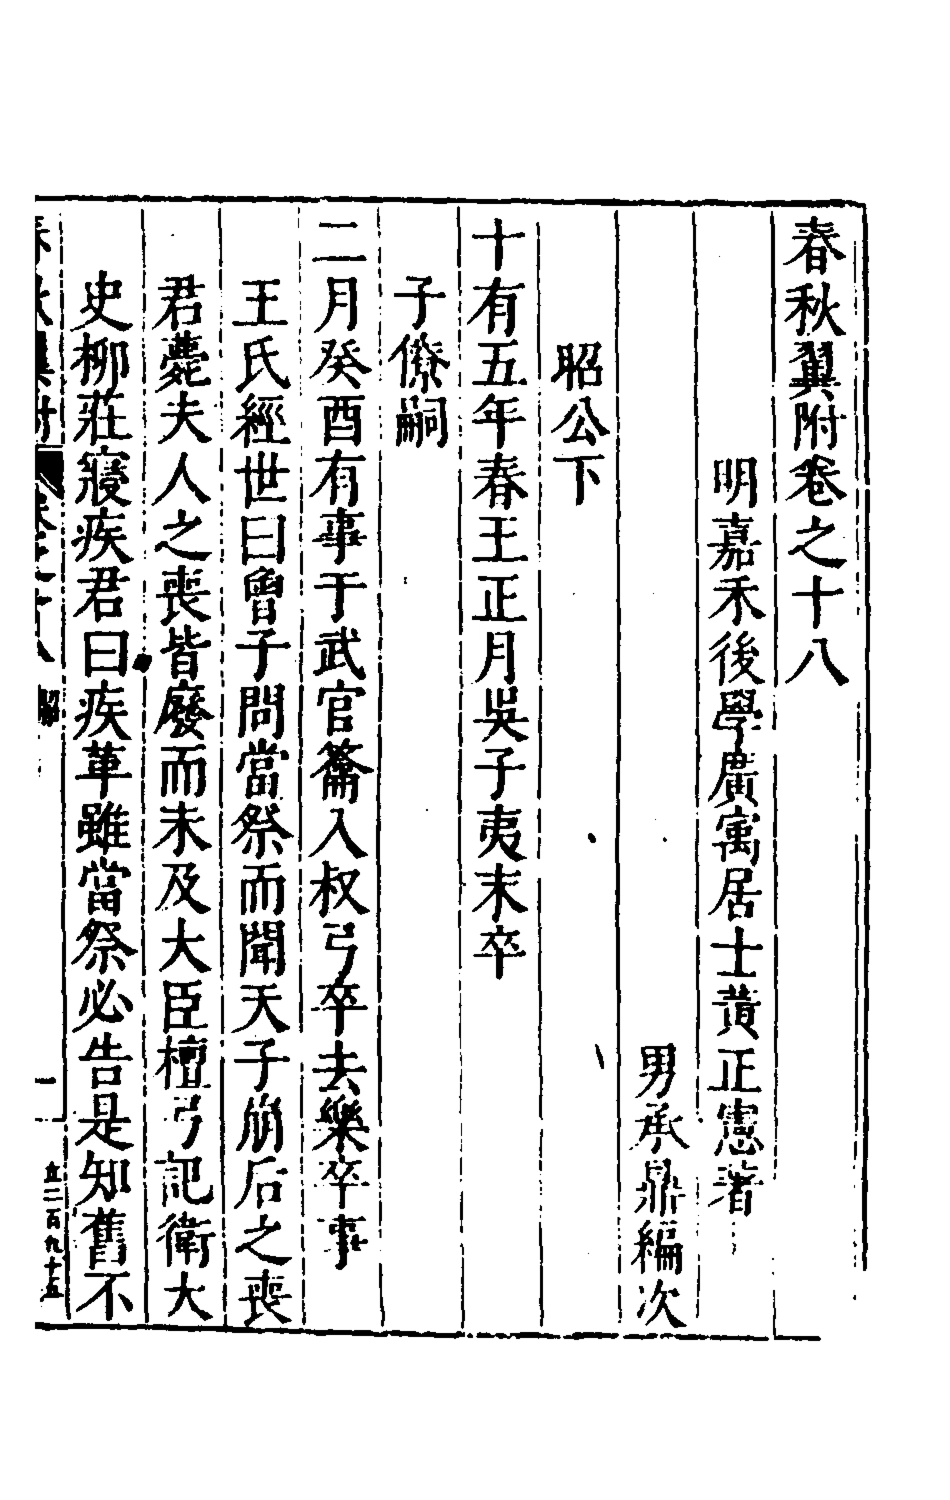 春秋翼附卷之十八
明嘉禾後學廣寓居士黄正憲著
男承鼎編次
昭公下
十有五年春王正月吳子夷末卒
子僚嗣
二月癸酉有事于武宫籥入叔弓卒去樂卒事
王氏經世曰曾子問當祭而聞天子崩后之喪
君薨夫人之喪皆廢而未及大臣檀弓記衛大
史柳莊寢疾君曰疾革雖當祭必告是知舊不
春秋翼附 卷之十八 昭 一 五二百九十五